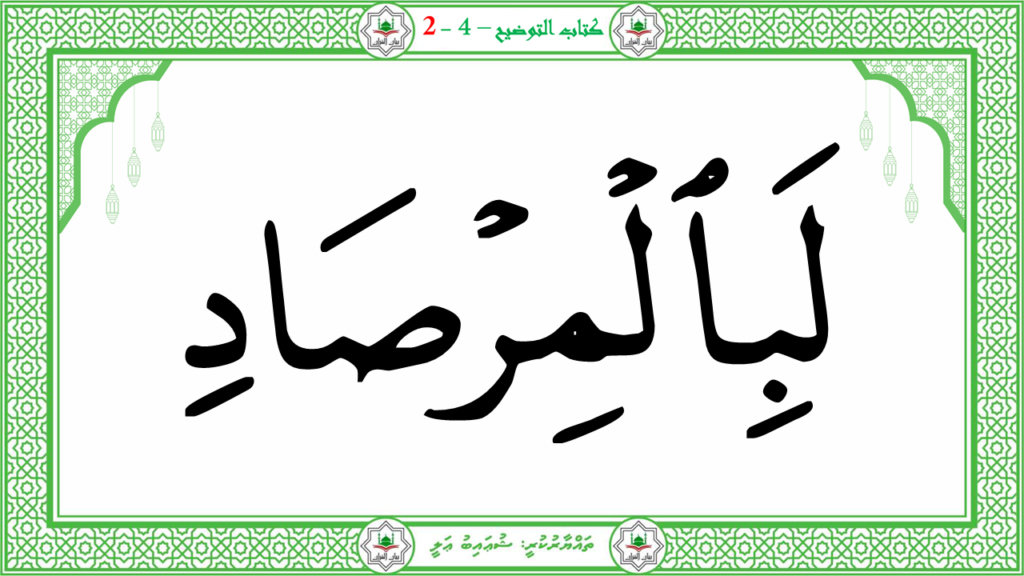 كتاب التوضيح – 4 - 2
لَبِٱلْمِرْصَادِ
ތައްޔާރުކުރީ: ޝުޢައިބު ޢަލީ